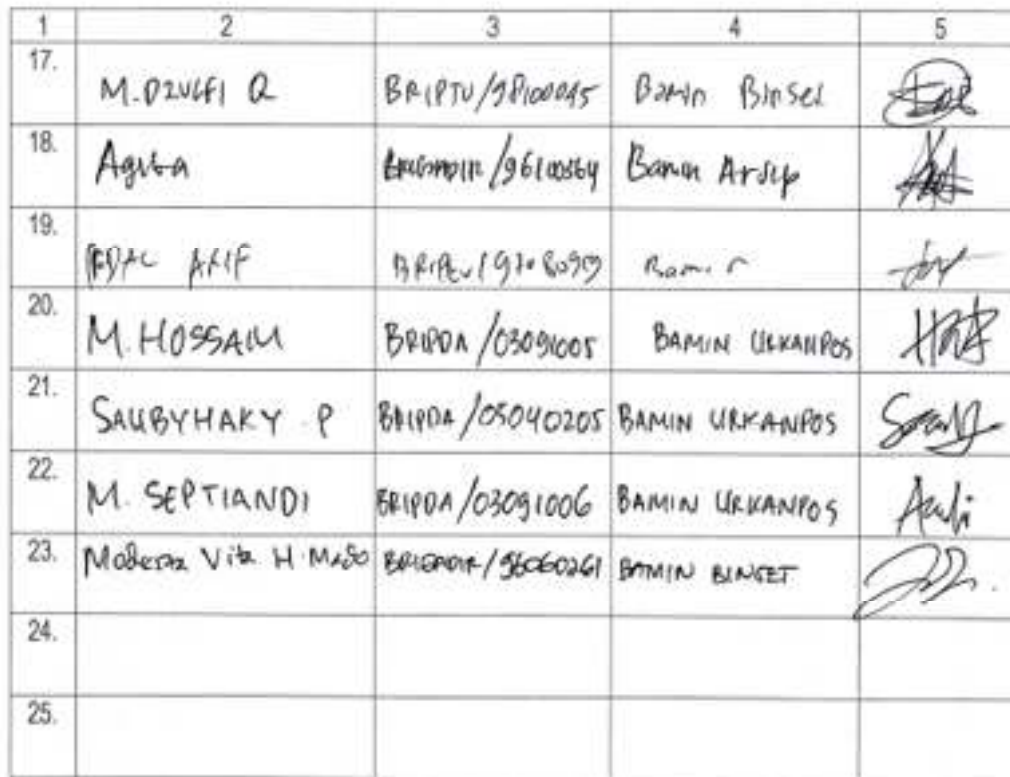 1 2 3 4 5
17. M. DZULFI Q BRIPTU/98100045 Bamin Binsel
18. Agita BRIGADIR/96100364 Bamin Arsip
19. ARIF Bamin
20. M. HOSSAM BRIPDA/03091005 BAMIN URKANPOS
21. SAUBYHAKY P BRIPDA/05040205 BAMIN URKANPOS
22. M. SEPTIANDI BRIPDA/03091006 BAMIN URKANPOS
23. Moderza Vita H. BRIGADIR/96060261 BAMIN BINSET
24.
25.